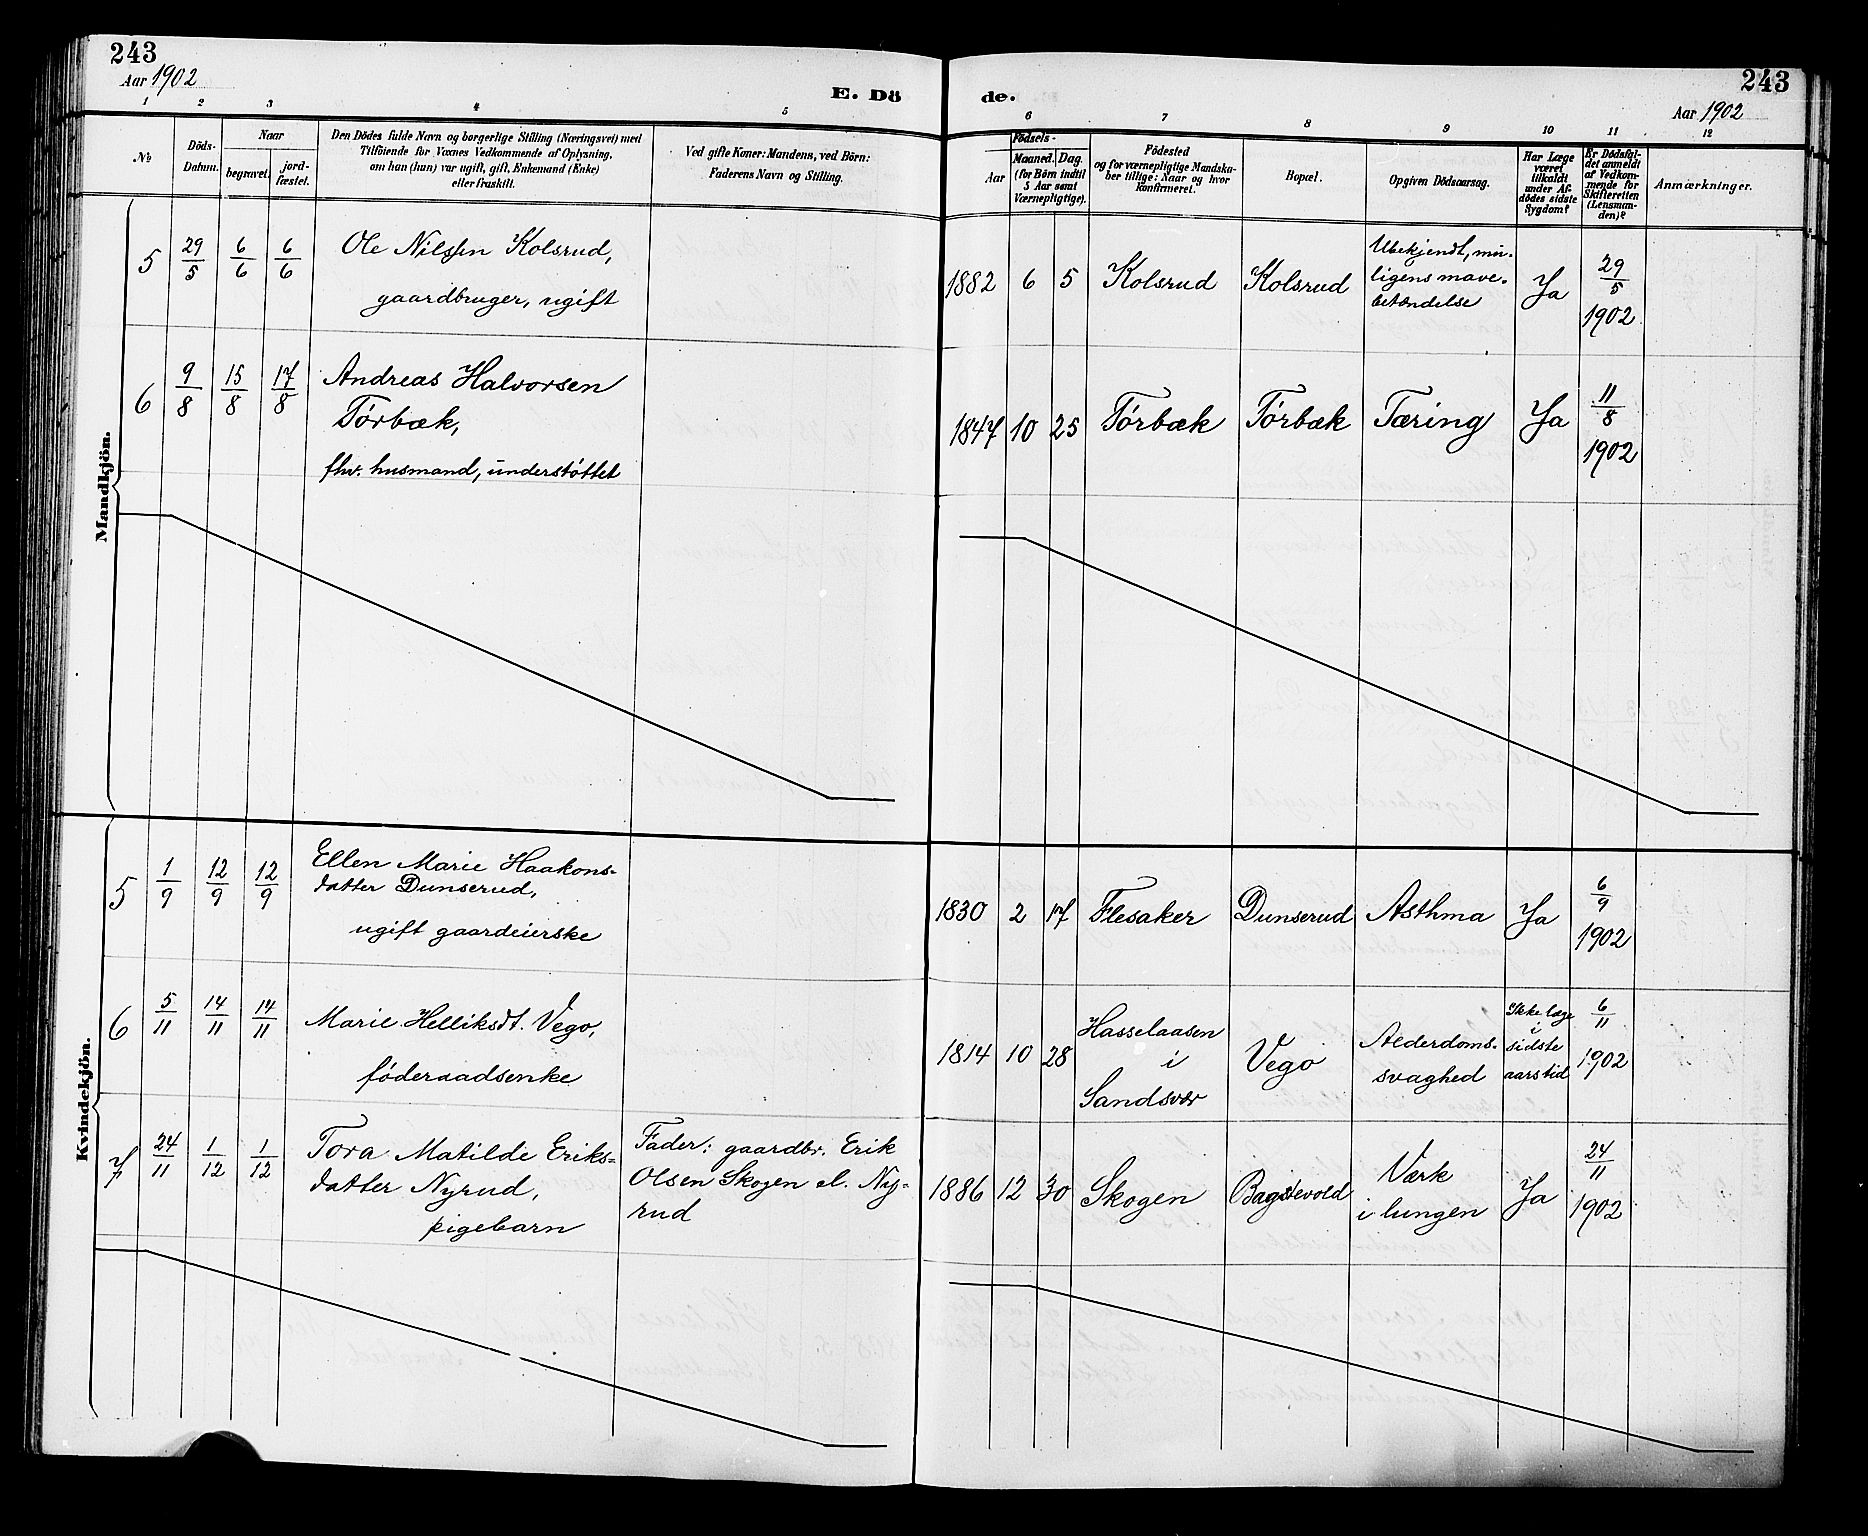 243
Aar 1902
E. Dö
de.
243
Aar 1902
1 2 3 4 5 6 7 8 9 10 11 12
№
Döds-
Datum.
Naar
begravet.
jord-
fæstet.
Den Dödes fulde Navn og borgerlige Stilling (Næringsvei) med
Tilföiende for Voxnes Vedkommende af Oplysning,
om han (hun) var ugift, gift, Enkemand (Enke)
eller fraskilt.
Ved gifte Koner: Mandens, ved Börn:
Faderens Navn og Stilling.
Födsels-
Aar
Maaned.
Dag.
(for Börn indtil
5 Aar samt
Værnepligtige).
Födested
og for værnepligtige Mandska-
ber tillige: Naar og hvor
konfirmeret.
Bopæl.
Opgiven Dödsaarsag.
Har Læge
været
tilkaldt
under Af-
dödes sidste
Sygdom?
Er Dödsfal-
det anmeldt
af Vedkom-
mende for
Skifteretten
(Lensman-
den)?
Anmærkninger.
Mandkjön.
5
29/5
6/6
6/6
Ole Nilssen Kolsrud,
gaardbruger, ugift
1882
6
5
Kolsrud
Kolsrud
Ubekjendt, mu-
ligens mave-
betændelse
Ja
29/5
1902
6
9/8
15/8
17/8
Andreas Halvorsen
Tórbæk,
fhv. husmand, understóttet
1847
10
25
Tórbæk
Tórbæk
Tæring
Ja
11/8
1902
Kvindekjön.
5
1/9
12/9
12/9
Ellen Marie Haakons-
datter Dunserud,
ugift gaardeierske
1830
2
17
Flesaker
Dunserud
Asthma
Ja
6/9
1902
6
5/11
14/11
14/11
Marie Helliksdt. Vego,
fóderaadsenke
1814
10
28
Hasselaasen
i
Sandsvær
Vego
Alderdoms-
svaghed
Ikke læge
i
sidste
aarstid
6/11
1902
7
24/11
1/12
1/12
Tora Matilde Eriks-
datter Nyrud,
pigebarn
Fader: gaardbr. Erik
Olsen Skogen el. Ny-
rud
1886
12
30
Skogen
Værk
i lungen
Ja
24/11
1902